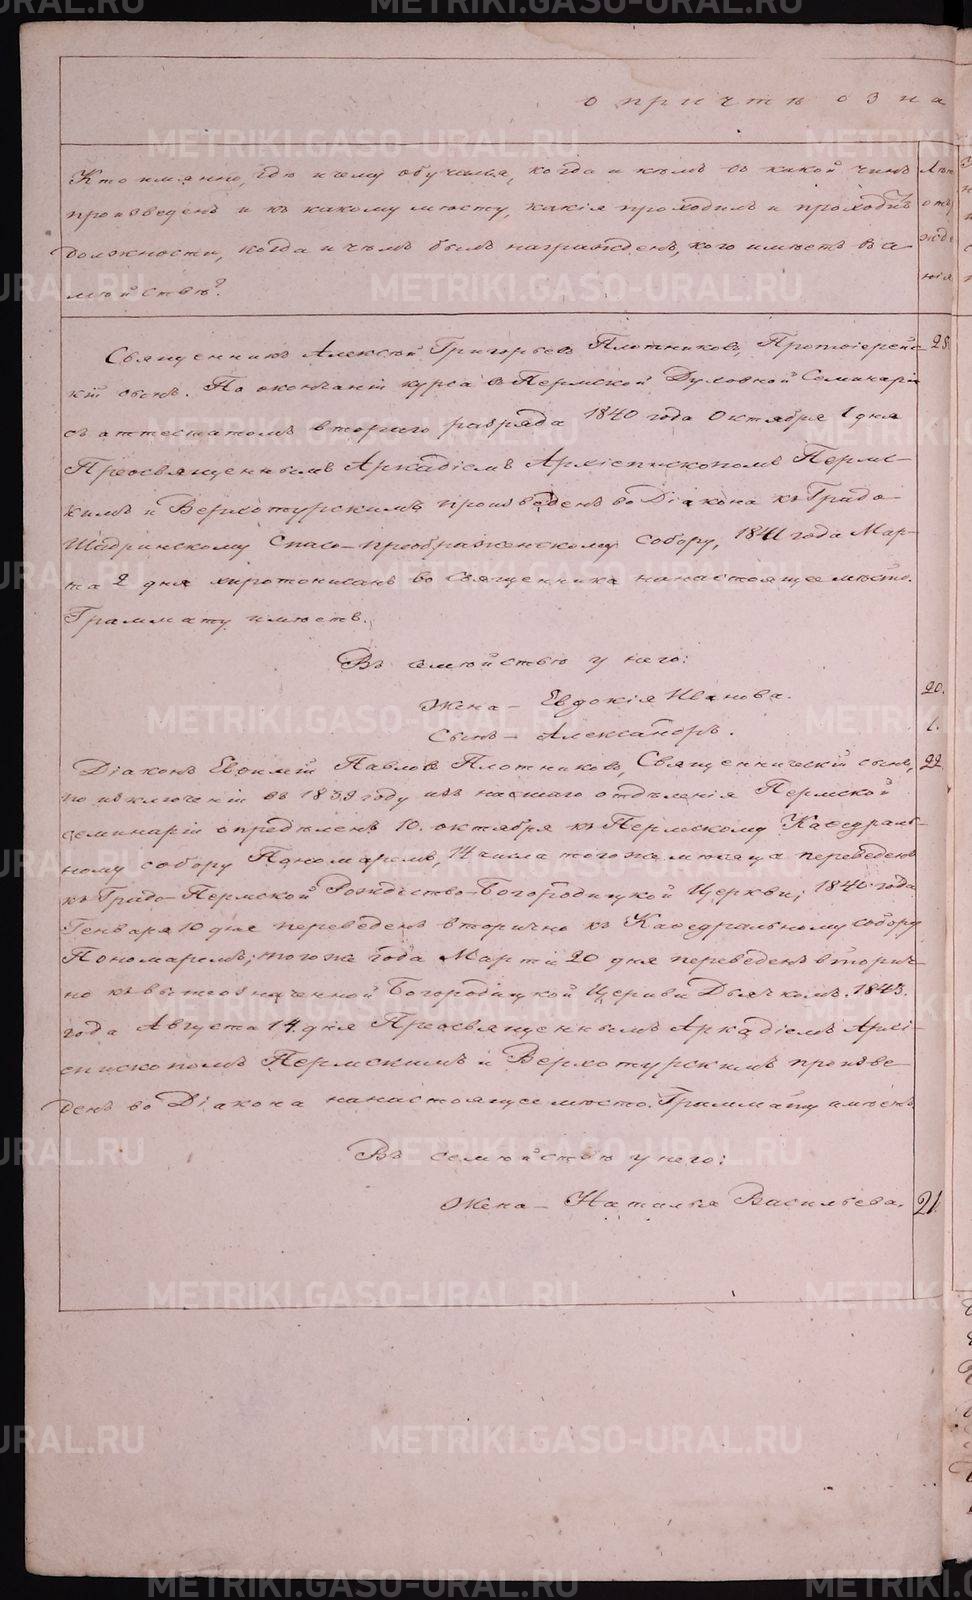 о причтѣ озна
Кто именно, гдѣ и чему обучался, когда и кѣмъ въ какой чинъ
произведенъ и къ какому мѣсту, какія проходилъ и проходитъ
должности, когда и чѣмъ былъ награжденъ, кого имѣетъ въ се
мѣйствѣ?
Лѣт
отъ
жде
нія
Священникъ Алексѣй Григорьевъ Плотниковъ, Протоіерейс- 28.
кій сынъ. По окончаніи курса въ Пермской Духовной Семинаріи
съ аттестатомъ втораго разряда 1840 года Октября 1 дня
Преосвященнымъ Аркадіемъ Архіепископомъ Перм-
кимъ и Верхотурскимъ произведенъ во Діакона къ Градо-
Шадринскому Спасо-преображенскому собору, 1841 года Мар-
та 2 дня хиротонисанъ во священника на настоящее мѣсто.
Граммату имѣетъ.
Въ семѣйствѣ у него:
Жена – Евдокія Иванова. 20.
Сынъ – Александръ. 1.
Діаконъ Евѳимій Павловъ Плотниковъ, Священническій сынъ, 22
по исключеніи въ 1839 году изъ низшаго отдѣленія Пермской
семинаріи опредѣленъ 10. октября къ Пермскому Каѳедраль-
ному собору Пономаремъ, числа того же мѣсяца переведенъ
къ Градо-Пермской Рождество-Богородицкой Церкви; 1840 года
Генваря 10 дня переведенъ вторично къ Каѳедральному собору
Пономаремъ; того же года Марта 20 дня переведенъ вторич-
но къ вышеозначенной Богородицкой Церкви Дьячкомъ. 1843.
года Августа 14. дня Преосвященнымъ Аркадіемъ Архі-
епископомъ Пермскимъ и Верхотурскимъ произве-
денъ во Діакона на настоящее мѣсто. Граммату имѣетъ
Въ семѣйствѣ у него:
Жена – Наталья Васильева. 21.
METRIKI.GASO-URAL.RU